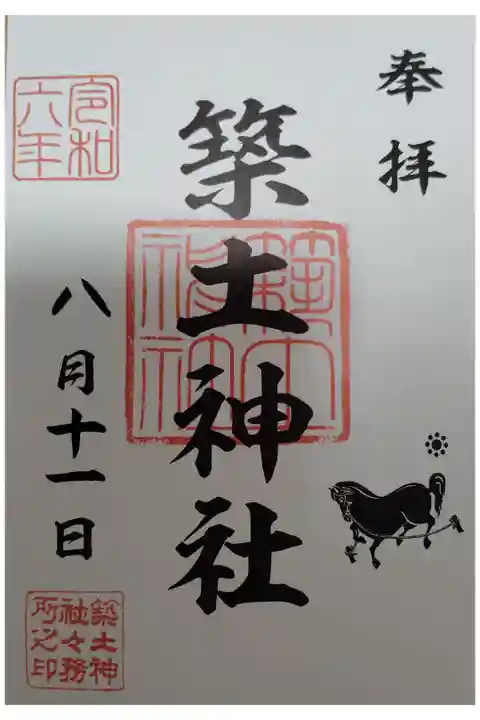 奉拝
築土神社
築土神社
令和六年
八月十一日
築土神
社々務
所之印